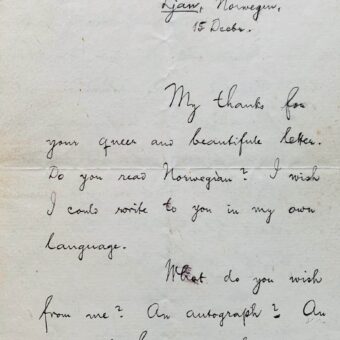 Ljan, Norwegen,
15 Decbr.
My thanks for
your queer and beautifule letter.
Do you read Norwegian? I wish
I could write to you in my own
language.
What do you wish
from me? An autograph? An